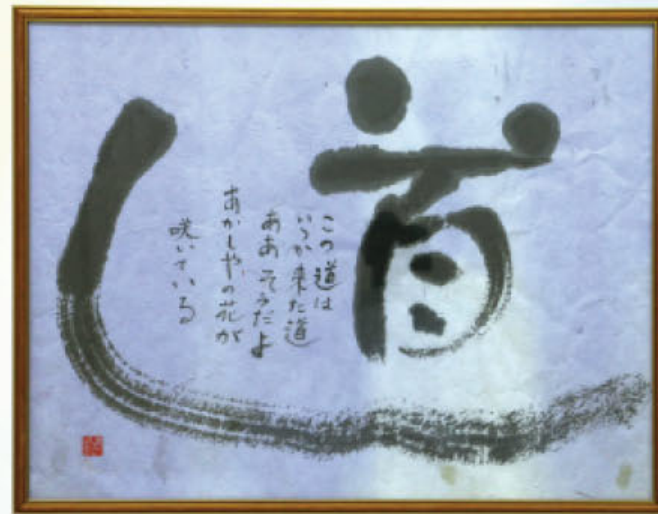 道
この道は
いつか来た道
ああそうだよ
あかしやの花が
咲いている